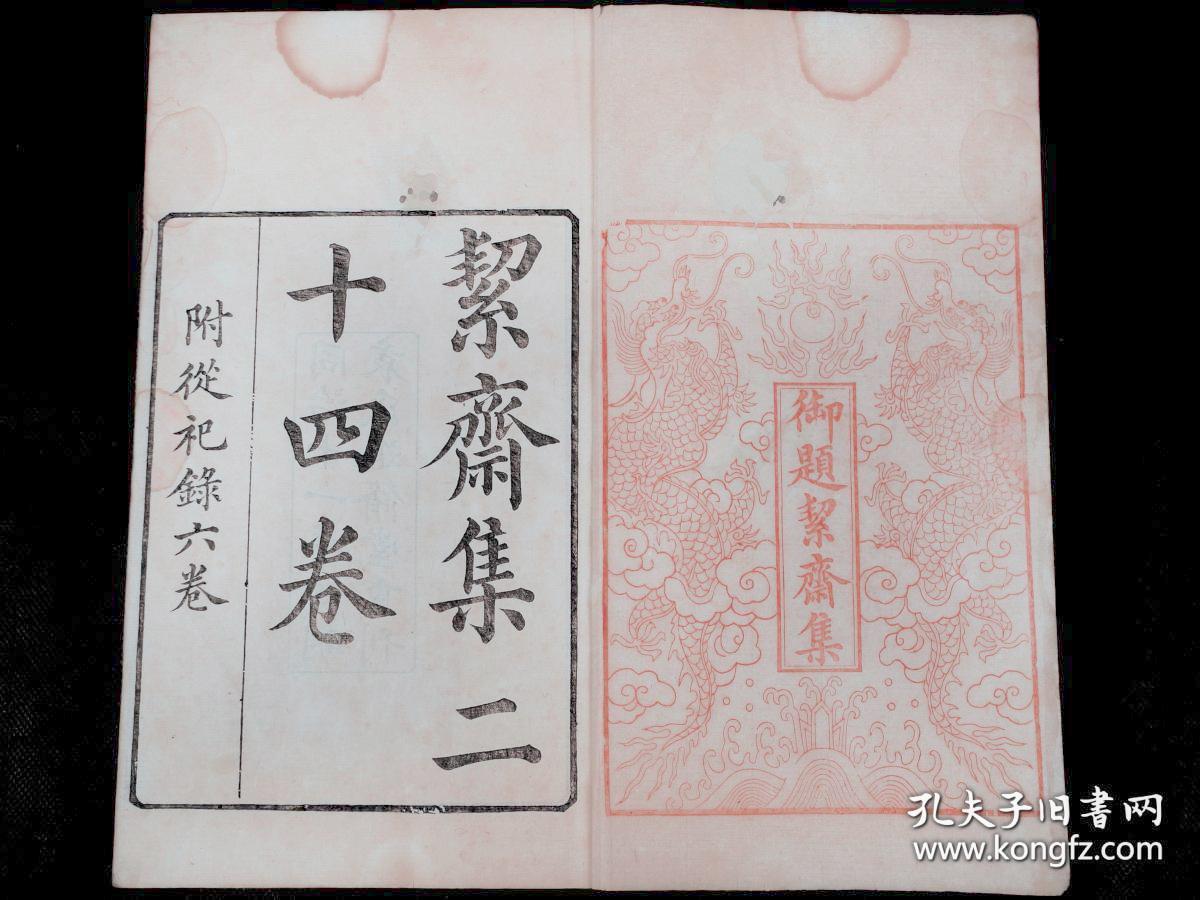 御題絜齋集
絜齋集二
十四卷
附從祀錄六卷
孔夫子旧书网
www.kongfz.com